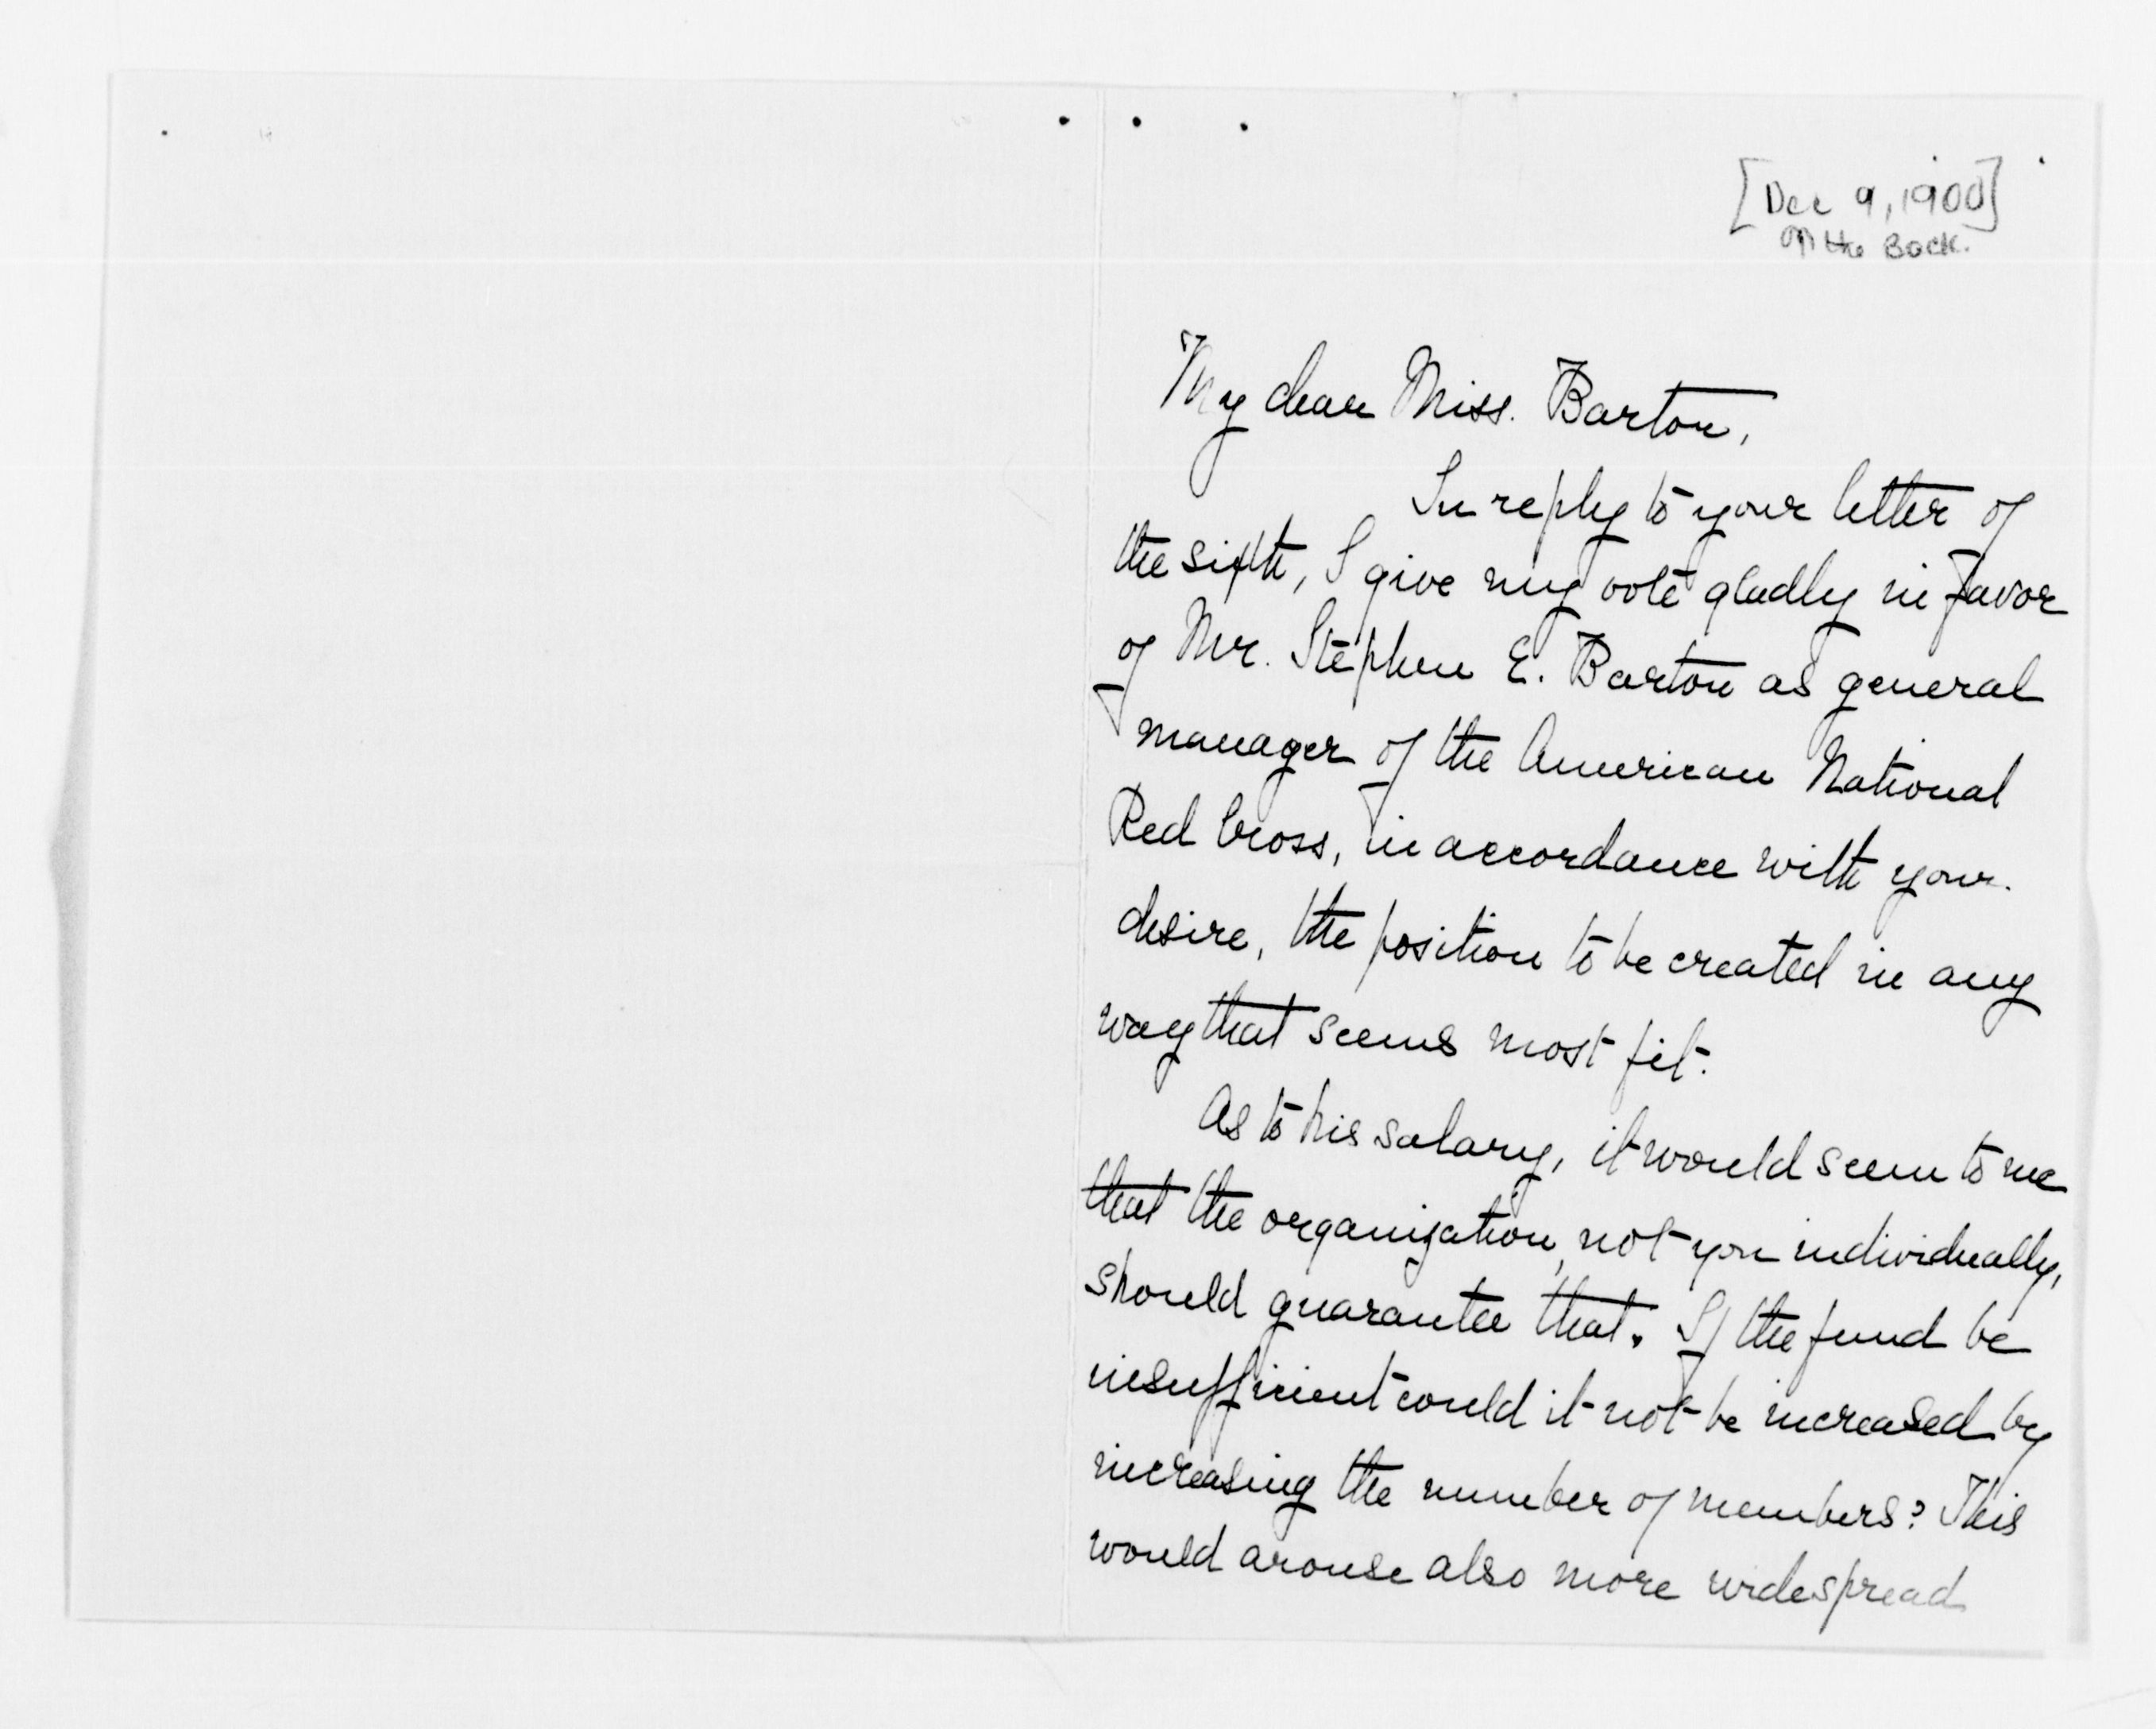 [Dec 9, 1900]
on the Back.
My dear Miss. Barton,
In reply to your letter of
the sixth, I give my vote gladly in favor
of Mr. Stephen E. Barton as general
manager of the American National
Red Cross, in accordance with your
desire, the position to be created in any
way that seems most fit.
As to his salary, it would seem to me
that the organization, not you individually,
should guarantee that. If the fund be
insufficient could it not be increased by
increasing the number of members? This
would arouse also more widespread